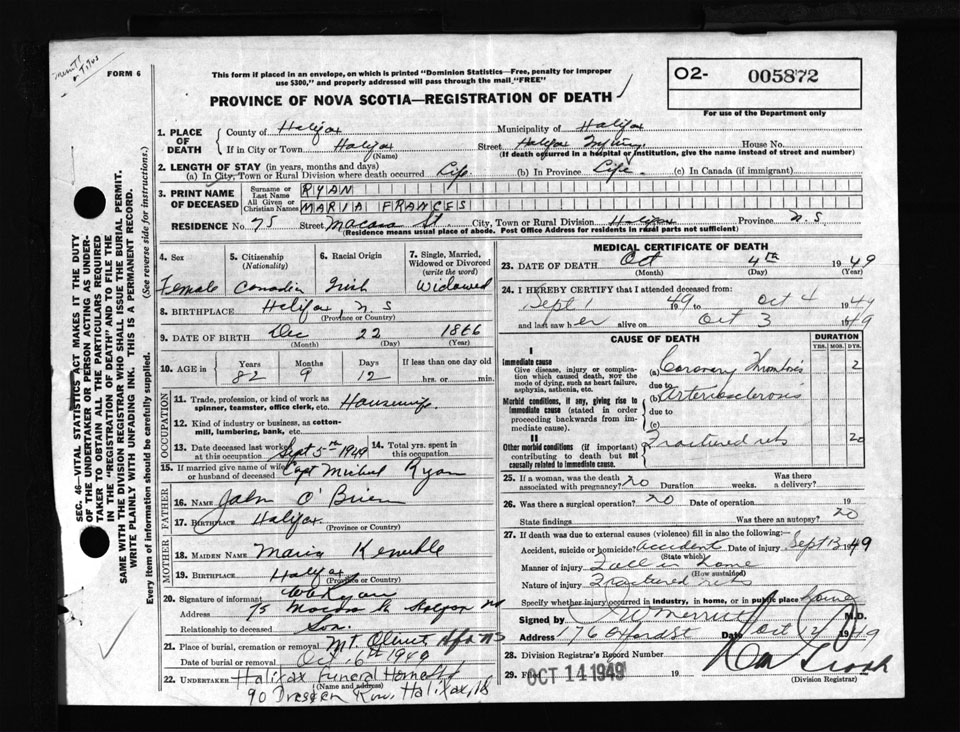 FORM 6
This form if placed in an envelope, on which is printed "Dominion Statistics—Free, penalty for improper
use $300," and properly addressed will pass through the mail "FREE"
O2- 005872
For use of the Department only
PROVINCE OF NOVA SCOTIA—REGISTRATION OF DEATH
SEC. 46—VITAL STATISTICS ACT MAKES IT THE DUTY
OF THE UNDERTAKER OR PERSON ACTING AS UNDER-
TAKER TO OBTAIN ALL THE PARTICULARS REQUIRED
IN THE "REGISTRATION OF DEATH" AND TO FILE THE
SAME WITH THE DIVISION REGISTRAR WHO SHALL ISSUE THE BURIAL PERMIT.
WRITE PLAINLY WITH UNFADING INK. THIS IS A PERMANENT RECORD.
Every item of information should be carefully supplied. (See reverse side for instructions.)
1. PLACE OF DEATH
County of Halifax Municipality of Halifax
If in City or Town Halifax (Name) Street Halifax House No.
(If death occurred in a hospital or institution, give the name instead of street and number)
2. LENGTH OF STAY (in years, months and days)
(a) In City, Town or Rural Division where death occurred Life (b) In Province Life. (c) In Canada (if immigrant)
3. PRINT NAME OF DECEASED
Surname or Last Name RYAN
All Given or Christian Names MARIA FRANCES
RESIDENCE No. 75 Street Macara St City, Town or Rural Division Halifax Province N.S
(Residence means usual place of abode. Post Office Address for residents in rural parts not sufficient)
4. Sex Female
5. Citizenship (Nationality) Canadian
6. Racial Origin Irish
7. Single, Married, Widowed or Divorced (write the word) Widowed
8. BIRTHPLACE Halifax, N S
(Province or Country)
9. DATE OF BIRTH Dec 22 1866
(Month) (Day) (Year)
10. AGE in Years 82 Months 9 Days 12 If less than one day old
hrs. or min.
OCCUPATION
11. Trade, profession, or kind of work as
spinner, teamster, office clerk, etc. Housewife.
12. Kind of industry or business, as cotton-
mill, lumbering, bank, etc.
13. Date deceased last worked at this occupation Sept 5th 1949 14. Total yrs. spent in this occupation
15. If married give name of wife or husband of deceased Capt Michael Ryan
FATHER
16. NAME John O'Brien
17. Birthplace Halifax
(Province or Country)
MOTHER
18. MAIDEN NAME Maria
19. BIRTHPLACE Halifax
(Province or Country)
20. Signature of informant Ryan
Address 75 Macara St Halifax NS
Relationship to deceased Son.
21. Place of burial, cremation or removal Mt Olivet Hfx NS
Date of burial or removal Oct 6th 1949
22. UNDERTAKER Halifax Funeral Home
(Name and address)
90 Dresden Row, Halifax, NS
MEDICAL CERTIFICATE OF DEATH
23. DATE OF DEATH Oct 4th 1949
(Month) (Day) (Year)
24. I HEREBY CERTIFY that I attended deceased from:
Sept 1 49 to Oct 4 1949
and last saw her alive on Oct 3 1949
CAUSE OF DEATH
DURATION
YRS. MOS. DYS.
I
Immediate cause
Give disease, injury or complica-
tion which caused death, NOT the
mode of dying, such as heart failure,
asphyxia, asthenia, etc.
(a) Coronary Thrombosis 2
due to
Morbid conditions, if any, giving rise to
immediate cause (stated in order
proceeding backwards from im-
mediate cause).
(b) Arteriosclerosis
due to
(c)
II
Other morbid conditions (if important)
contributing to death but not
causally related to immediate cause.
Fractured ribs 20
25. If a woman, was the death
associated with pregnancy? no Duration weeks. Was there
a delivery?
26. Was there a surgical operation? no Date of operation 19
State findings Was there an autopsy? no
27. If death was due to external causes (violence) fill in also the following:
Accident, suicide or homicide? accident Date of injury Sept 13 1949
(State which)
Manner of injury Fall in home
(How sustained)
Nature of injury Fractured ribs
Specify whether injury occurred in industry, in home, or in public place home
Signed by Merritt M.D.
Address 176 Oxford St Date Oct 12 1949
28. Division Registrar's Record Number
29. Filed OCT 14 1949 19
(Division Registrar)